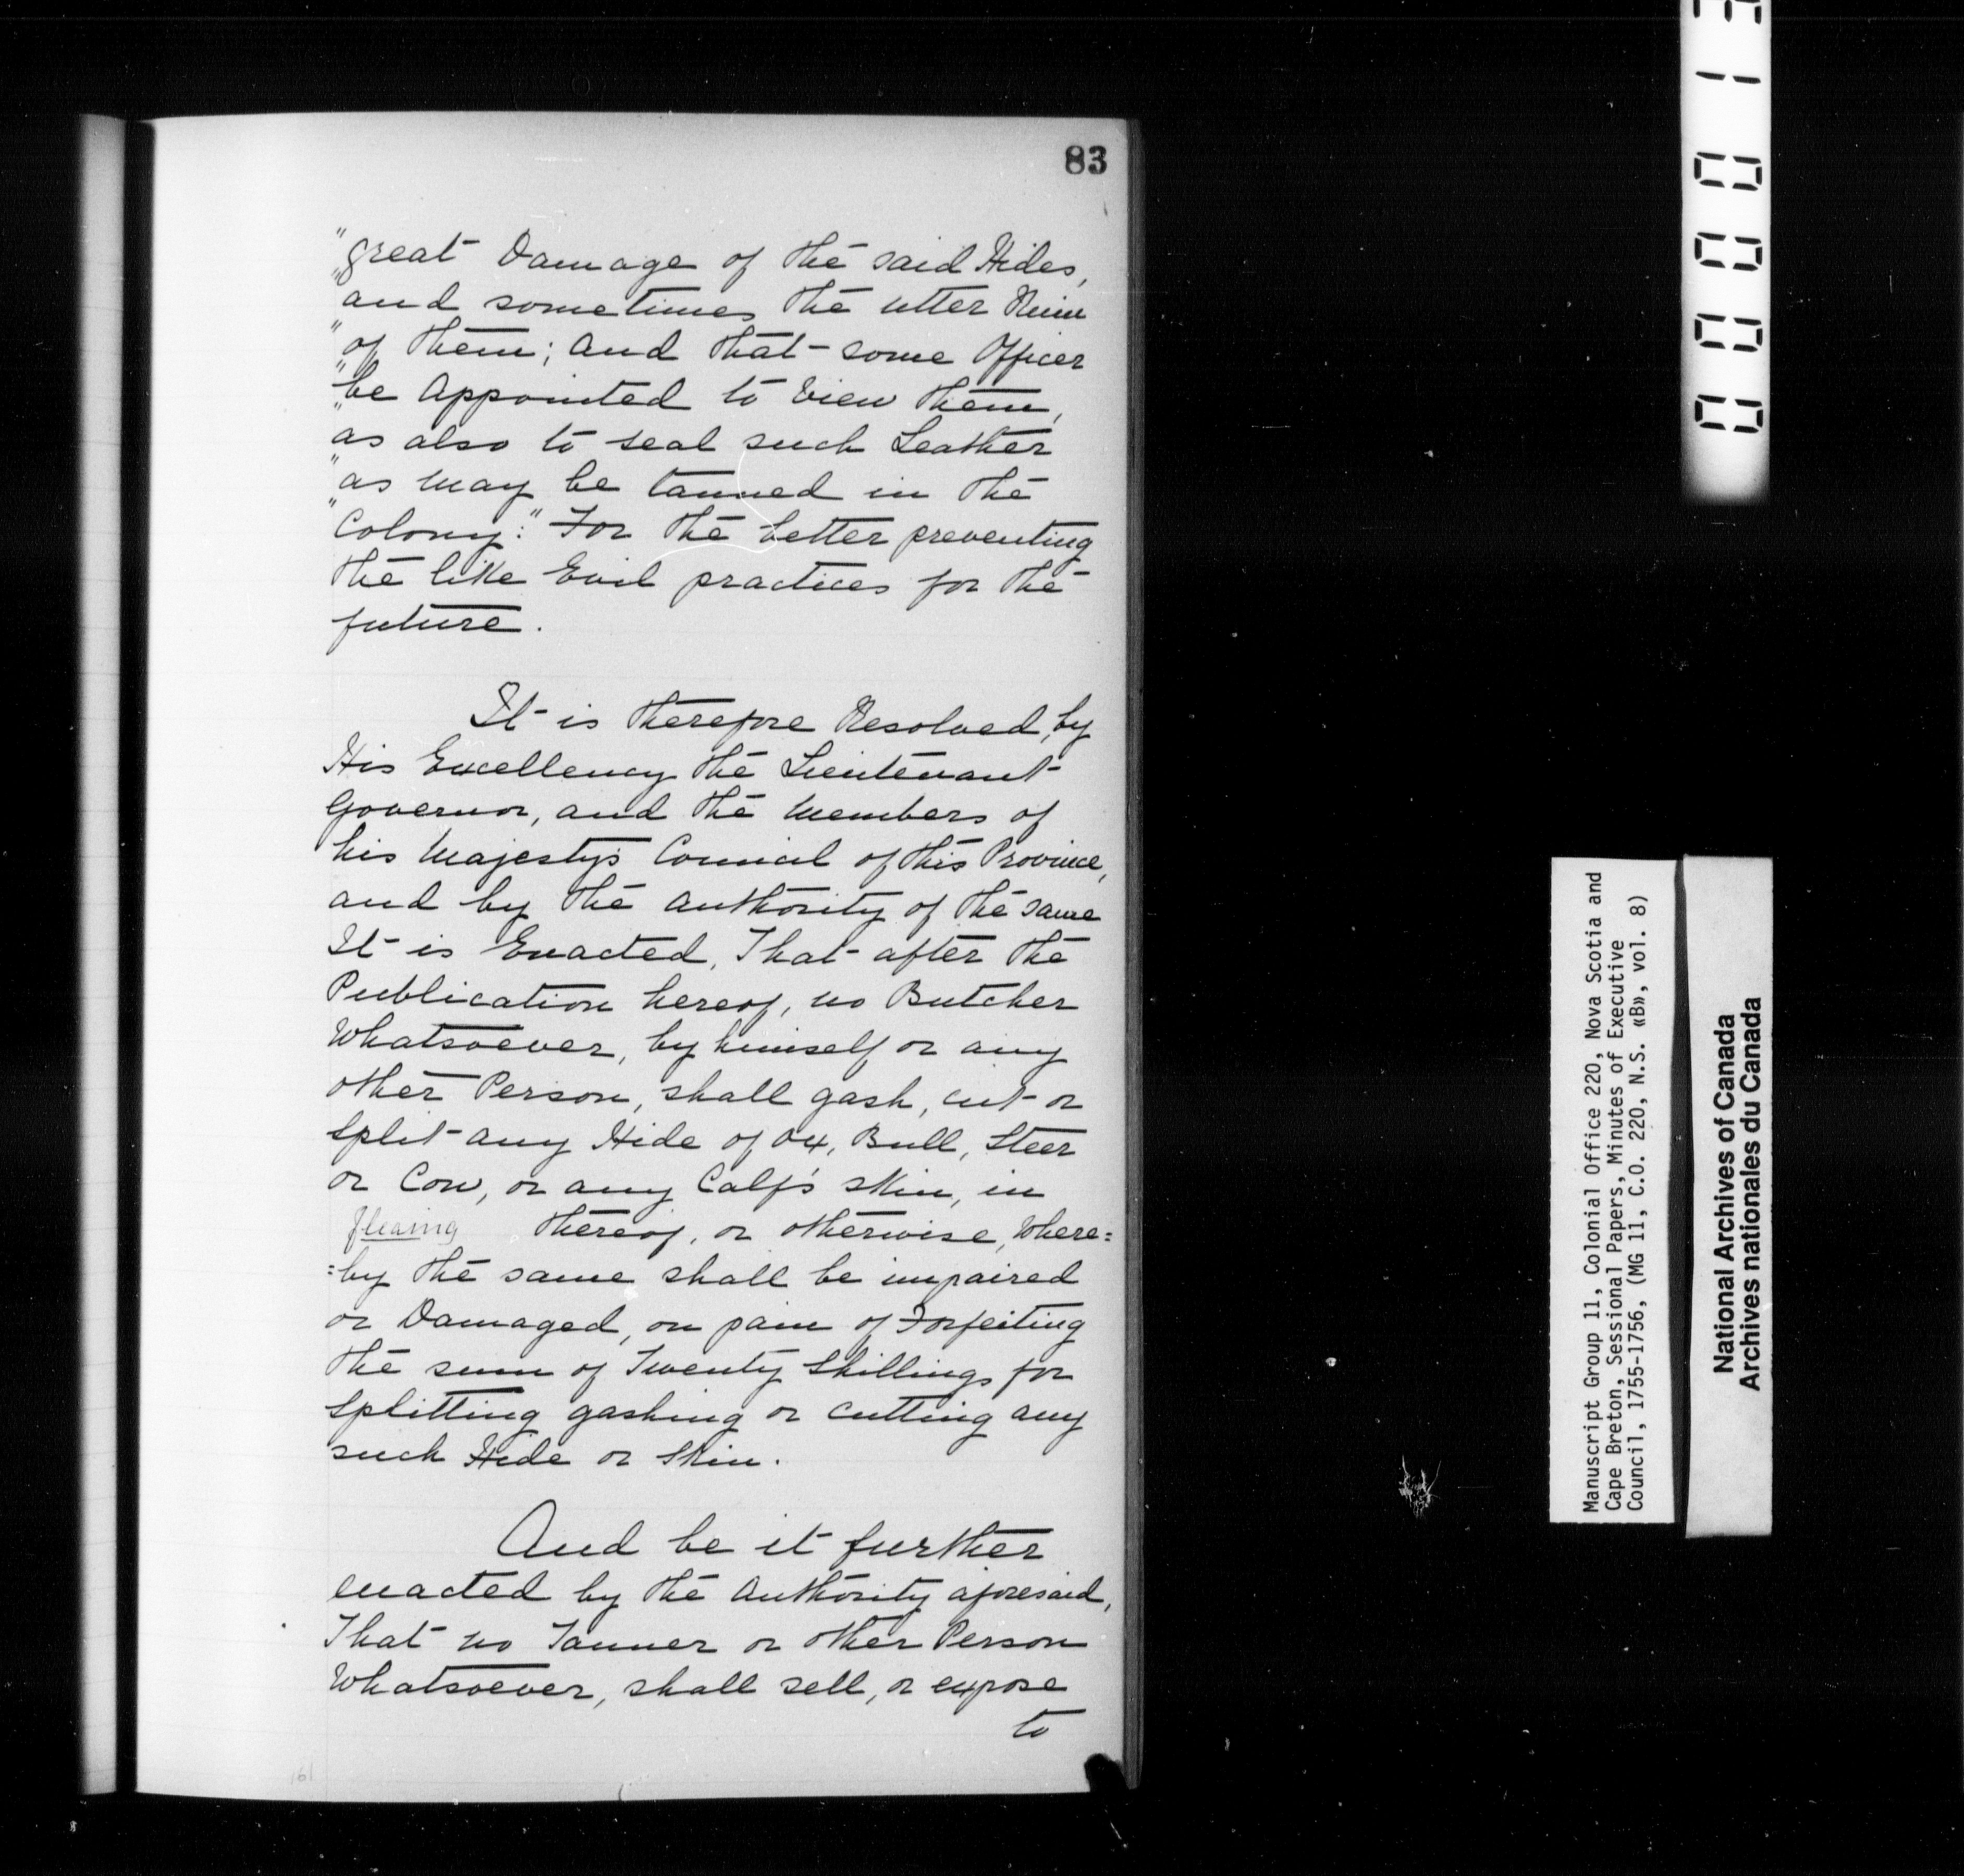 83
"great Damage of the said Hides,
"and sometimes the utter Ruin
"of them; and that some Officer
"be Appointed to view them,
"as also to seal such Leather
"as may be tanned in the
"Colony:" For the better preventing
the like Evil practices for the
future.
It is therefore Resolved, by
His Excellency the Lieutenant
Governor, and the Members of
his Majesty's Council of this Province,
and by the authority of the same
It is Enacted, That after the
Publication hereof, no Butcher
Whatsoever, by himself or any
other Person, shall gash, cut or
split any Hide of Ox, Bull, Steer
or Cow, or any Calf's skin, in
fleaing thereof, or otherwise, Where=
=by the same shall be impaired
or Damaged, on pain of Forfeiting
the sum of Twenty Shillings for
splitting gashing or cutting any
such Hide or Skin.
And be it further
enacted by the Authority aforesaid,
That no Tanner or other Person
Whatsoever, shall sell, or expose
to
161
Manuscript Group 11, Colonial Office 220, Nova Scotia and
Cape Breton, Sessional Papers, Minutes of Executive
Council, 1755-1756, (MG 11, C.O. 220, N.S. «B», vol. 8)
National Archives of Canada
Archives nationales du Canada